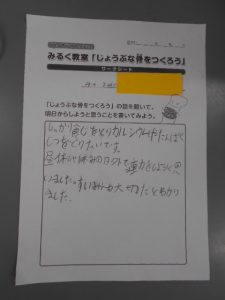 みるく教室「じょうぶな骨をつくろう」
ワークシート
「じょうぶな骨をつくろう」の話を聞いて、
明日からしようと思うことを書いてみよう。
しっかり食じをとりカルシウムやたんぱく
しつをとりたいです。
昼休みや休みの日に外で運動をしようと思
いました。すいみんも大切だとわかり
ました。